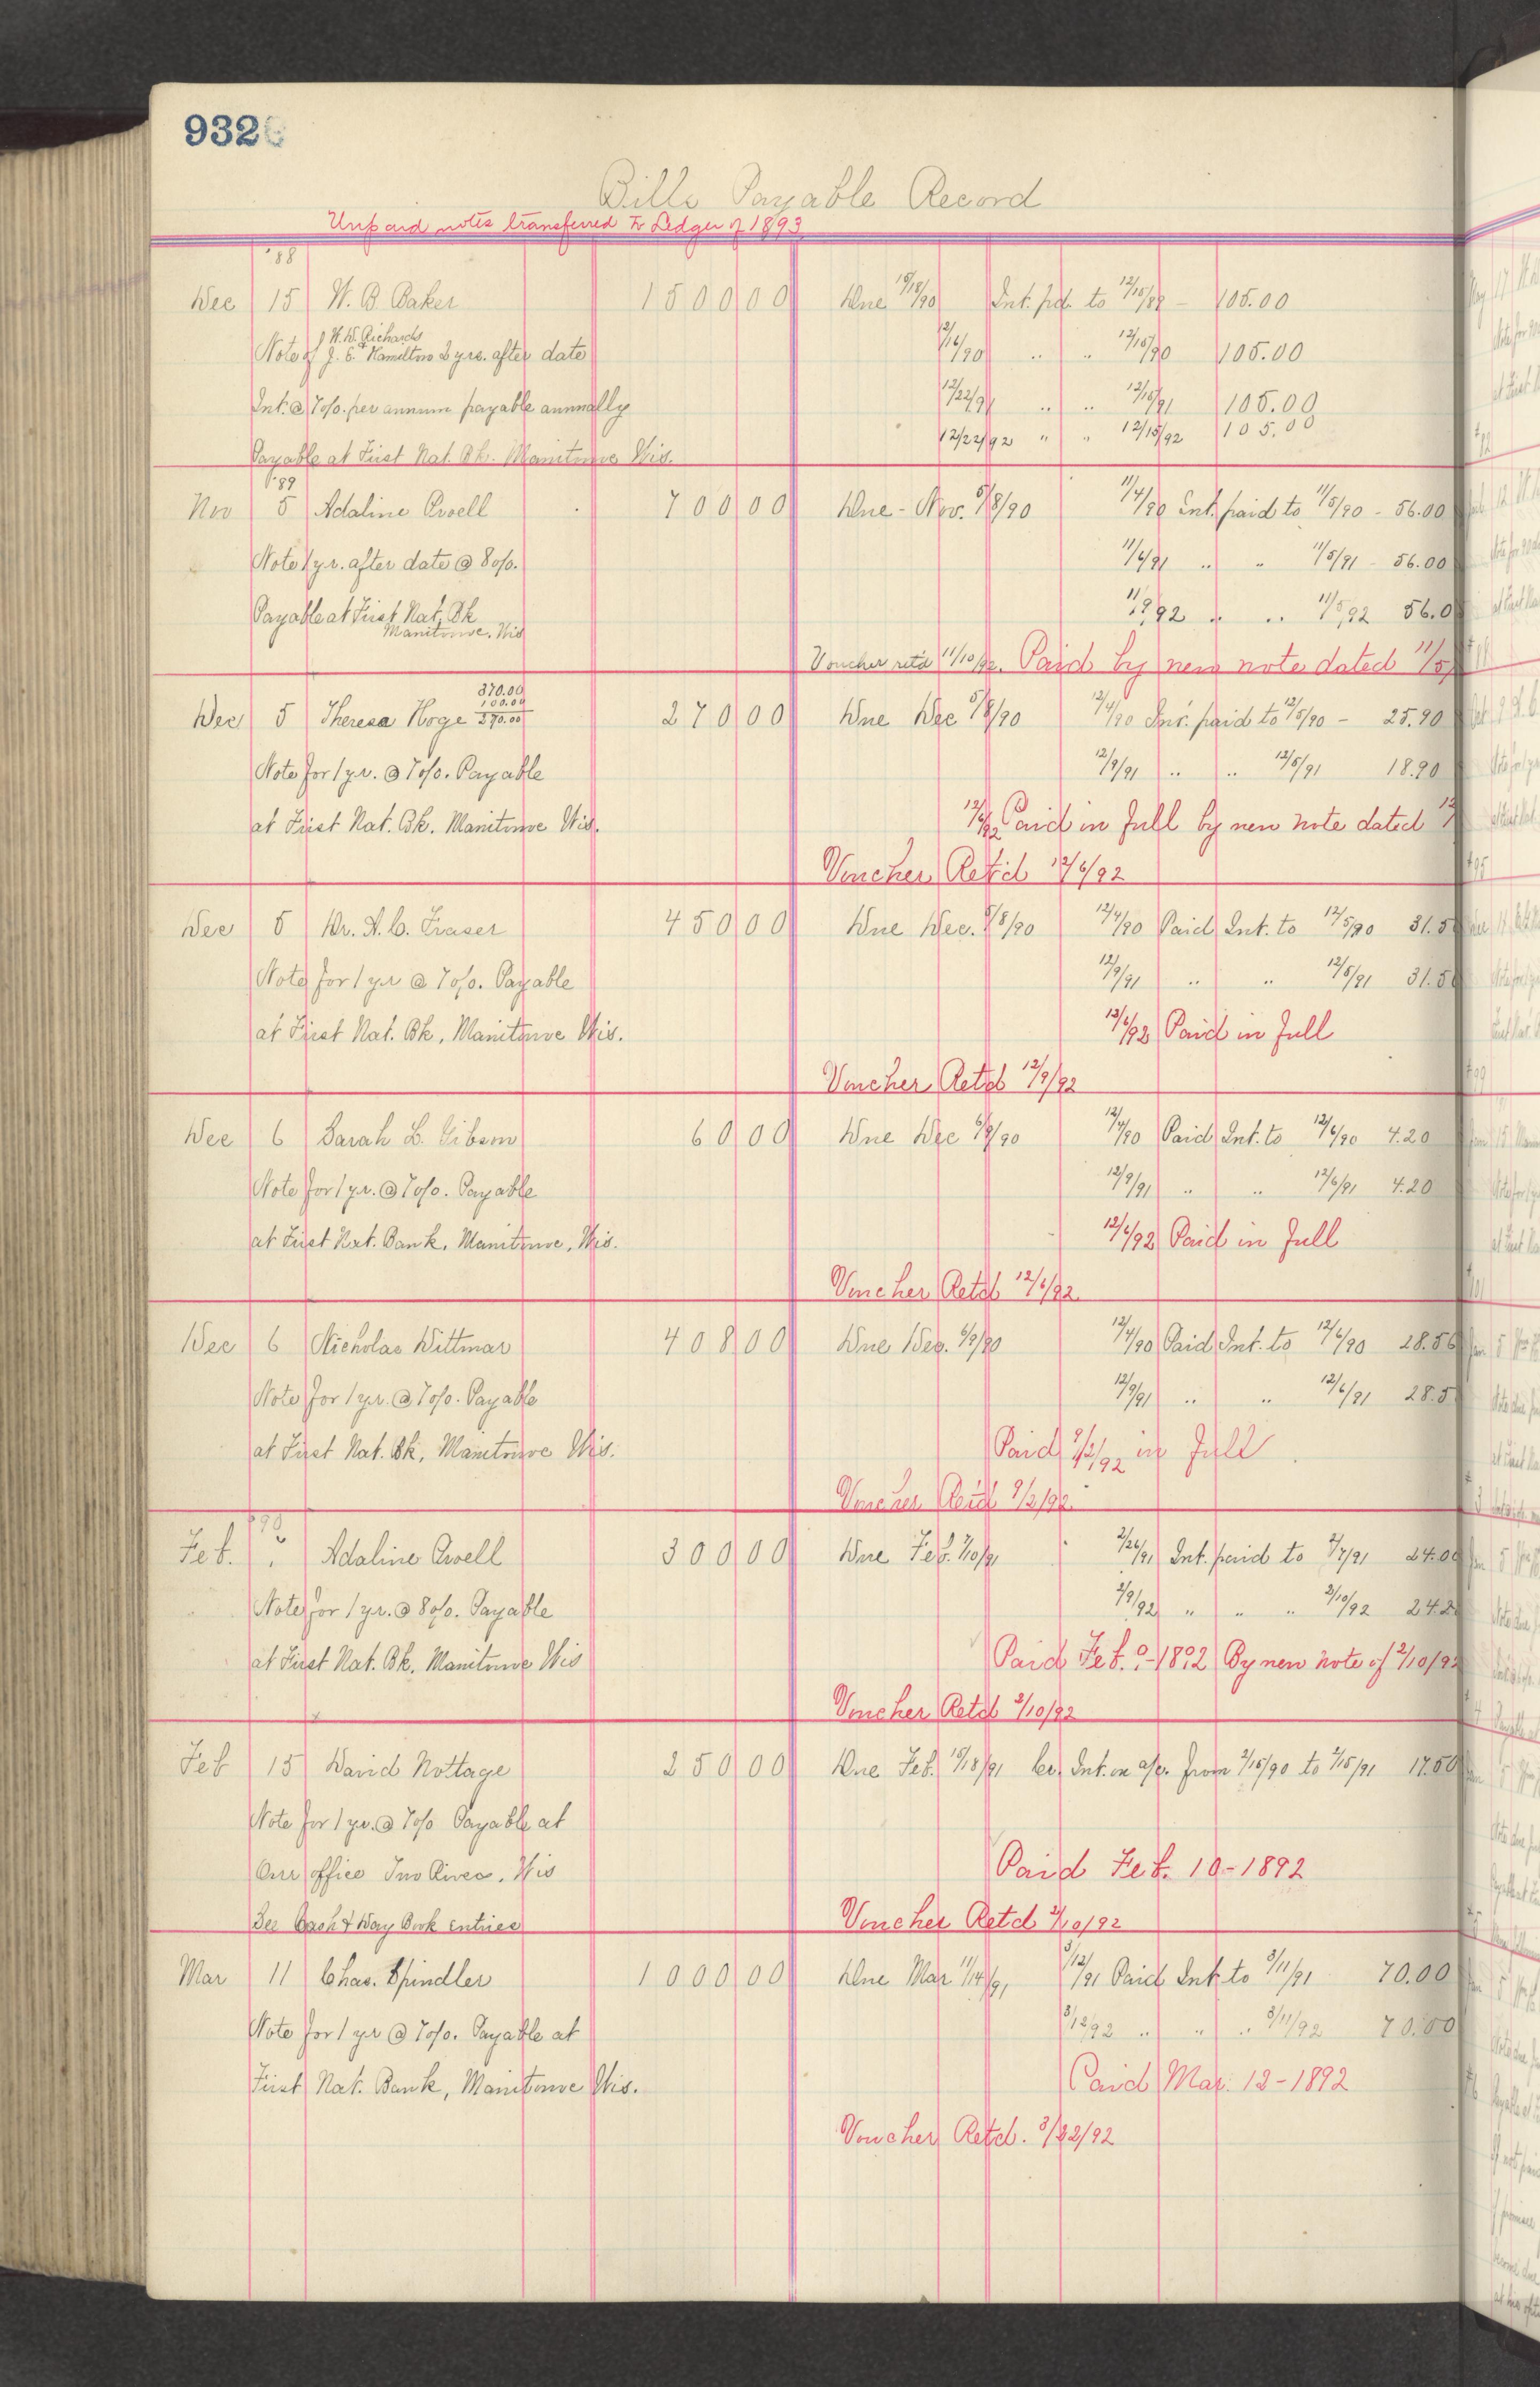 932
Bills Payable Record
Unpaid notes transferred to Ledger of 1893
'88
Dec 15 W. B. Baker 1500 00 Due 15/18/90 Int. pd. to 12/15/89 - 105.00
Note of W. D. Richards J. E. Hamilton 2 yrs. after date 12/16/90 " " 12/15/90 105.00
Int. @ 7o/o. per annum payable annually 12/22/91 " " 12/15/91 105.00
12/22/92 " " 12/15/92 105.00
Payable at First Nat. Bk. Manitowoc Wis.
'89
Nov 5 Adaline Crvell 700 00 Due - Nov. 5/8/90 11/4/90 Int. paid to 11/5/90 - 56.00
Note 1 yr. after date @ 8o/o. 11/6/91 " " 11/5/91 - 56.00
Payable at First Nat. Bk 92 " " 11/5/92 56.0
Manitowoc, Wis
Voucher ret'd 11/10/92. Paid by new note dated 11/5/
370.00
100.00
Dec 5 Theresa Hoge 270.00 270 00 Due Dec 5/8/90 12/4/90 Int. paid to 12/5/90 - 25.90
Note for 1 yr. @ 7o/o. Payable 12/9/91 " " 12/5/91 18.90
at First Nat. Bk. Manitowoc Wis. 12/6/92 Paid in full by new note dated 12
Voucher Ret'd 12/6/92
Dec 5 Dr. A. C. Fraser 450 00 Due Dec. 5/8/90 12/4/90 Paid Int. to 12/5/90 31.5
Note for 1 yr @ 7o/o. Payable 12/9/91 " " 12/5/91 31.5
at First Nat. Bk, Manitowoc Wis. 12/6/92 Paid in full
Voucher Ret'd 12/9/92
Dec 6 Sarah L. Gibson 60 00 Due Dec 6/9/90 12/4/90 Paid Int. to 12/6/90 4.20
Note for 1 yr. @ 7o/o. Payable 12/9/91 " " 12/6/91 4.20
at First Nat. Bank, Manitowoc, Wis. 12/6/92 Paid in full
Voucher Retd 12/6/92
Dec 6 Nicholas Dittmar 408 00 Due Dec. 6/9/90 12/4/90 Paid Int. to 12/6/90 28.56
Note for 1 yr. @ 7o/o. Payable 12/9/91 " " 12/6/91 28.5
at First Nat. Bk, Manitowoc Wis. Paid 9/2/92 in full
Voucher Ret'd 9/2/92.
'90
Feb. Adaline Crvell 300 00 Due Feb. 7/10/91 2/26/91 Int. paid to 2/7/91 24.00
Note for 1 yr. @ 8o/o. Payable 2/9/92 " " " 2/10/92 24.2
at First Nat. Bk. Manitowoc Wis Paid Feb. 1892 By new note of 2/10/92
Voucher Retd 2/10/92
Feb 15 David Nottage 250 00 Due Feb. 15/18/91 Cr. Int. on a/c. from 2/15/90 to 2/15/91 17.50
Note for 1 yr. @ 7o/o Payable at
Our office Two Rivers, Wis Paid Feb. 10-1892
See Cash & Day Book entries Voucher Retd 2/10/92
Mar 11 Chas. Spindler 1000 00 Due Mar 11/14/91 3/12/91 Paid Int to 3/11/91 70.00
Note for 1 yr @ 7o/o. Payable at 3/12/92 " " " 3/11/92 70.00
First Nat. Bank, Manitowoc Wis. Paid Mar. 12-1892
Voucher Retd. 3/22/92